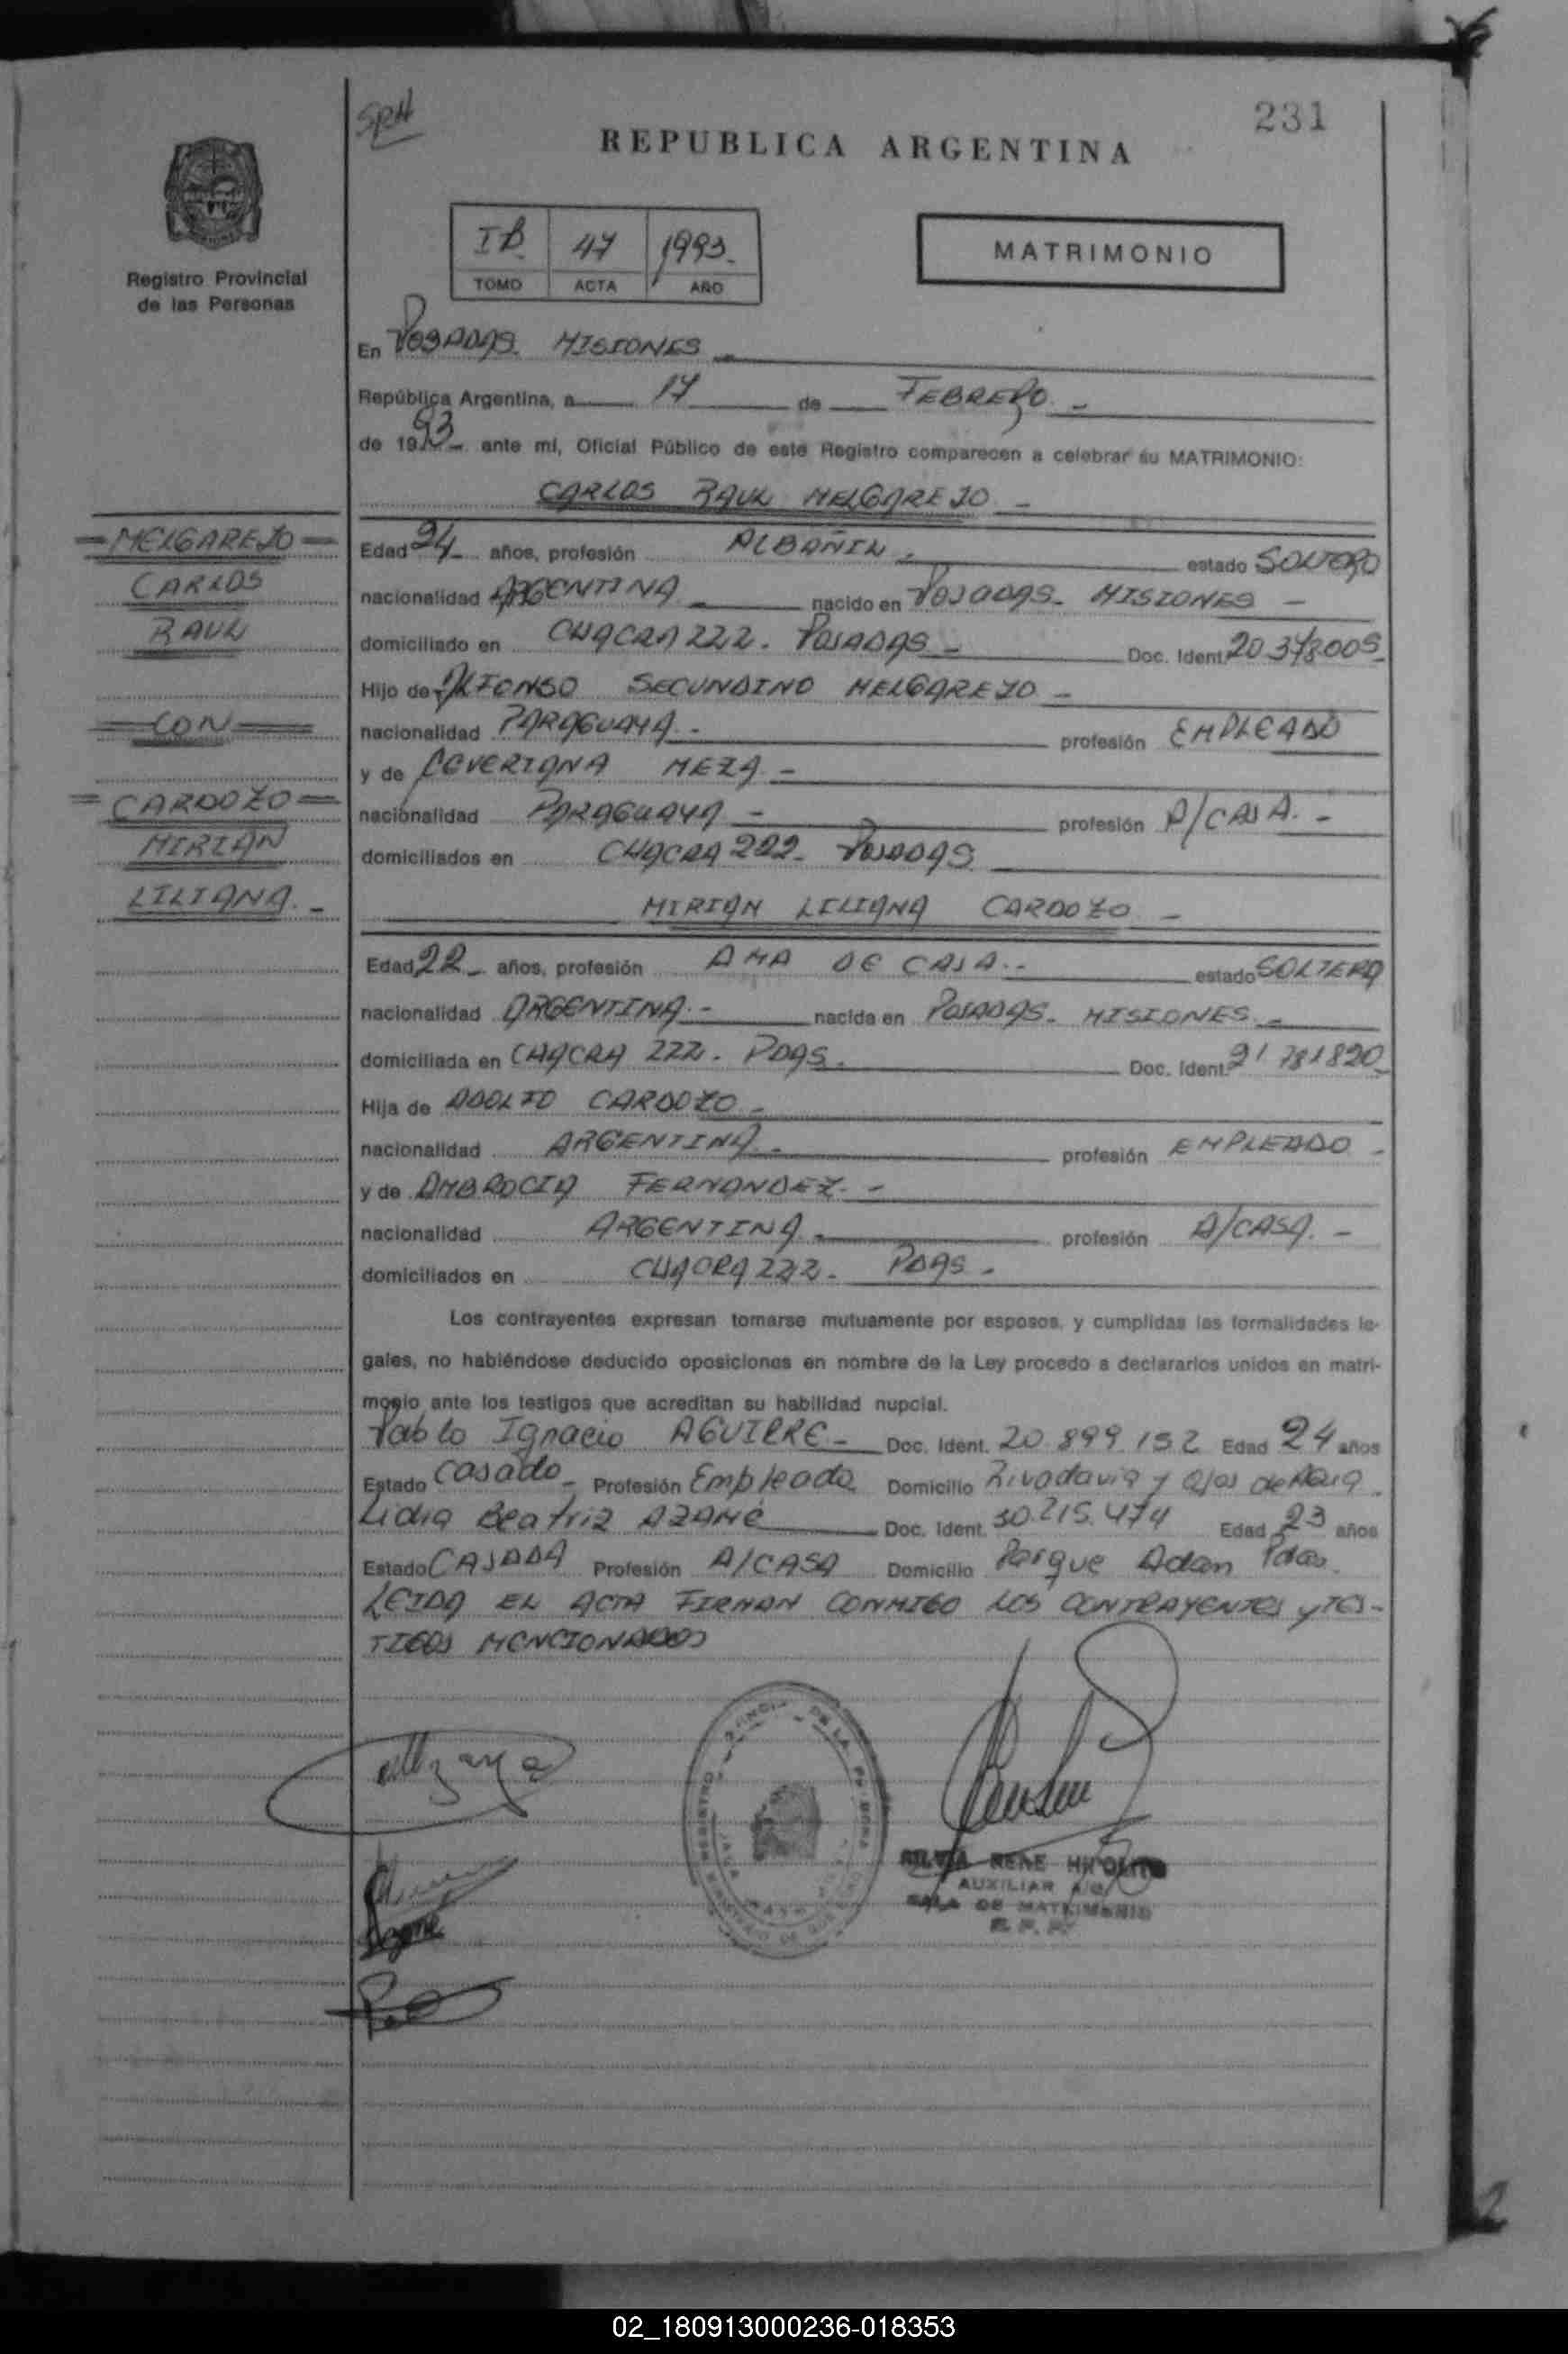 SRH
231
REPUBLICA ARGENTINA
Registro Provincial
de las Personas
IB 47 1993.
TOMO ACTA AÑO
MATRIMONIO
En POSADAS. MISIONES
República Argentina, a 17 de FEBRERO. -
de 1993 ante mí, Oficial Público de este Registro comparecen a celebrar su MATRIMONIO:
CARLOS RAUL MELGAREJO -
= MELGAREJO =
CARLOS
RAUL
= CON =
= CARDOZO =
MIRIAN
LILIANA. -
Edad 24 años, profesión ALBAÑIL. estado SOLTERO
nacionalidad ARGENTINA nacido en POSADAS. MISIONES -
domiciliado en CHACRA 222. POSADAS - Doc. Ident. 20 378005
Hijo de ALFONSO SECUNDINO MELGAREJO -
nacionalidad PARAGUAYA. - profesión EMPLEADO
y de CEVERIANA MEZA -
nacionalidad PARAGUAYA - profesión A/CASA. -
domiciliados en CHACRA 222. POSADAS
MIRIAN LILIANA CARDOZO -
Edad 22 años, profesión AMA DE CASA. - estado SOLTERA
nacionalidad ARGENTINA. - nacida en POSADAS. MISIONES -
domiciliada en CHACRA 222. PDAS. Doc. Ident. 21 781820
Hija de ADOLFO CARDOZO -
nacionalidad ARGENTINA. - profesión EMPLEADO -
y de AMBROCIA FERNANDEZ. -
nacionalidad ARGENTINA. profesión A/CASA. -
domiciliados en CHACRA 222. PDAS.
Los contrayentes expresan tomarse mutuamente por esposos, y cumplidas las formalidades le-
gales, no habiéndose deducido oposiciones en nombre de la Ley procedo a declararlos unidos en matri-
monio ante los testigos que acreditan su habilidad nupcial.
Pablo Ignacio AGUIRRE - Doc. Ident. 20.899.152 Edad 24 años
Estado Casado - Profesión Empleado Domicilio Rivadavia y Ojos de Agua.
Lidia Beatriz AZAME Doc. Ident. 30.215.474 Edad 23 años
Estado CASADA Profesión A/CASA Domicilio Parque Adam Pdas.
LEIDA EL ACTA FIRMAN CONMIGO LOS CONTRAYENTES y TES-
TIGOS MENCIONADOS
SILVIA RENE HIPOLITO
AUXILIAR
SALA DE MATRIMONIO
02_180913000236-018353